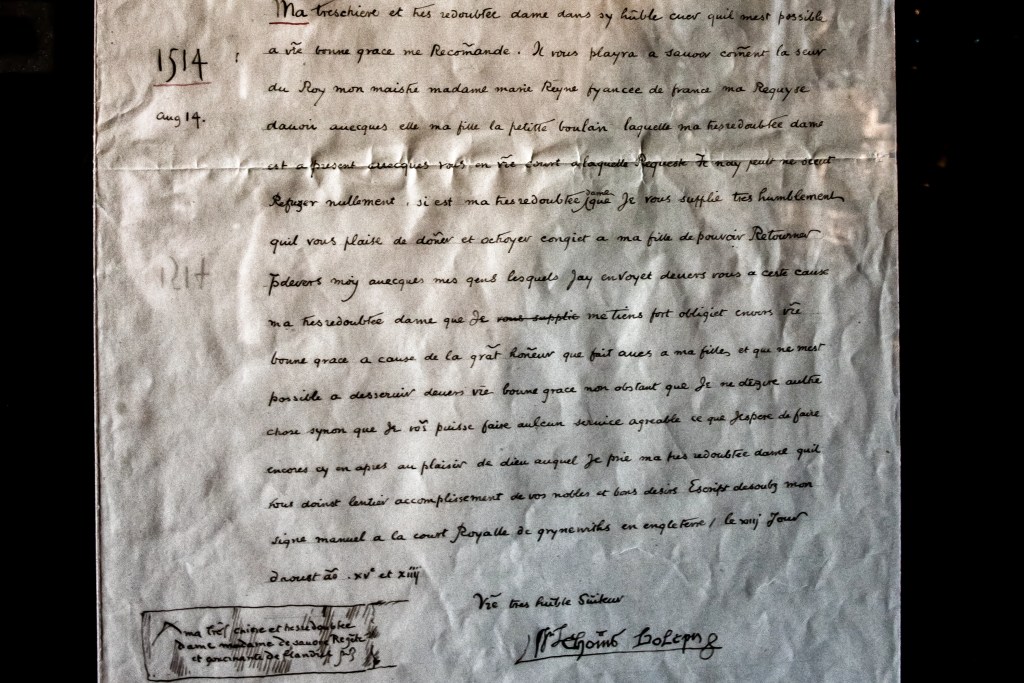 Ma treschiere et tres redoubtée dame dans sy hũble cuer quil mest possible
1514 :
a vr̃e bonne grace me Recom̃ande . Il vous playra a sauoor com̃ent la seur
du Roy mon maistre madame marie Reyne fyancee de france ma Requyse
aug 14.
dauoir auecques elle ma fille la petitte boulain laquelle ma tresredoubtée dame
est a present auecques vous en vr̃e court a laquelle Requeste Je nay peut ne sceut
Refuzer nullement , si est ma tresredoubtée dame que Je vous supplie tres humblement
quil vous plaise de don̄er et octroyer congiet a ma fille de pouvoir Retourner
1514
pdevers moy auecques mes gens lesquels Jay envoyet deuers vous a ceste cause
ma tresredoubtée dame que Je vous supplie me tiens fort obligiet envers vr̃e
bonne grace a cause de la grãt hon̄eur que fait aues a ma fille, et que ne mest
possible a desseruir deuers vr̃e bonne grace non obstant que Je ne dezire aultre
chose synon que Je vos̃ puisse faire aulcun service agreable ce que Jespere de faire
encores cy en apres au plaisir de dieu auquel Je prie ma tres redoubtée dame quil
vous doinst lentier accomplissement de vos nobles et bons desirs Escript desoubz mon
signe manuel a la court Royalle de grynewiths en engleterre / le xiiij Jour
daoust ão . xvᶜ et xiiij
Vr̃e tres hũble Suiteur
ma tres chiere et tresredoubtée
dame madame de sauoie Regente
et de flandres